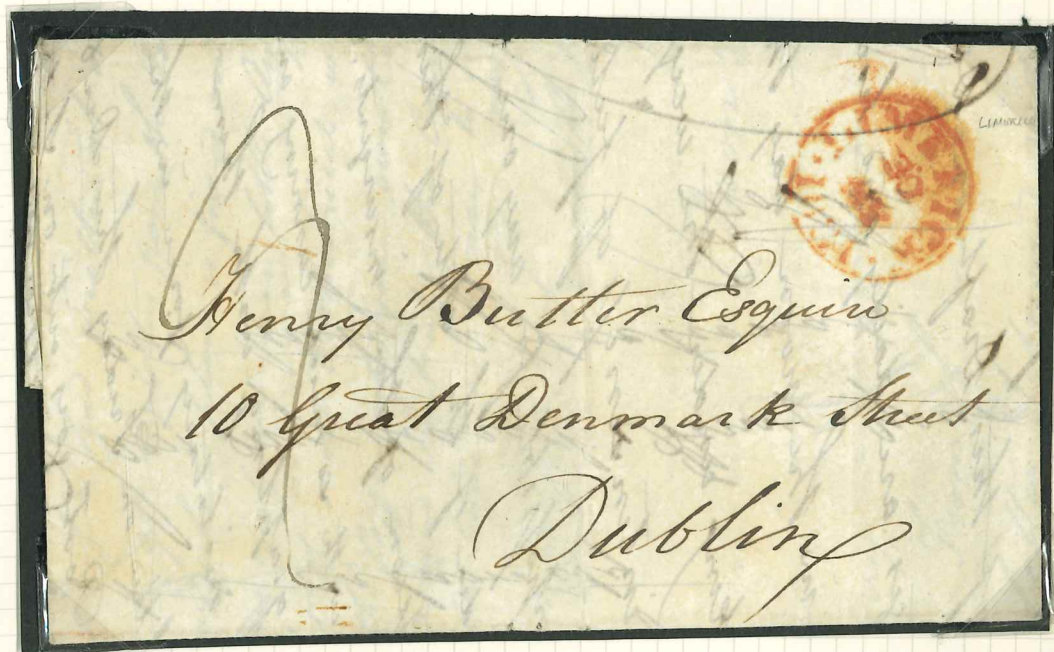 LIMERICK
Henry Butter Esquire
10 Great Denmark Street
Dublin